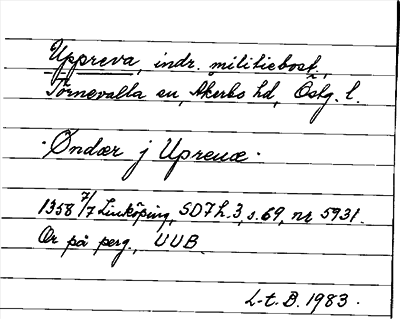 Uppreva, indr. militiebost.,
Törnevalla sn, Åkerbo hd, Östg. l.
· Øndær j Upreuæ ·
1358 7/7 Linköping, SD 7 h. 3, s. 69, nr 5931.
Or på perg., UUB
L-t. B. 1983.